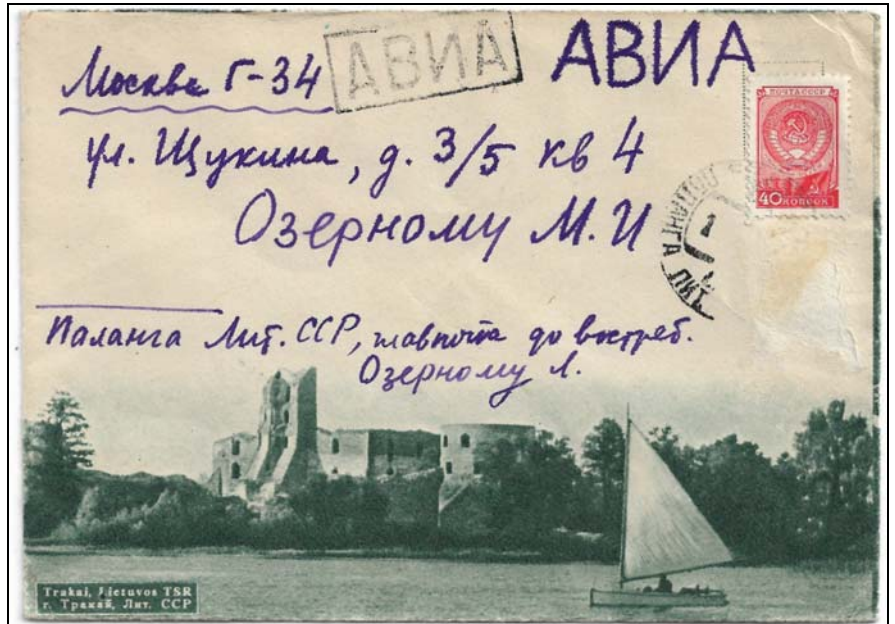 Москва Г-34
АВИА
АВИА
ПОЧТА СССР
40 КОПЕЕК
ул. Щукина, д. 3/5 кв 4
Озерному М. И
ПАЛАНГА ЛИТ.
Паланга Лит. ССР, главпочта до востреб.
Озерному Л.
Trakai, Lietuvos TSR
г. Тракай, Лит. ССР